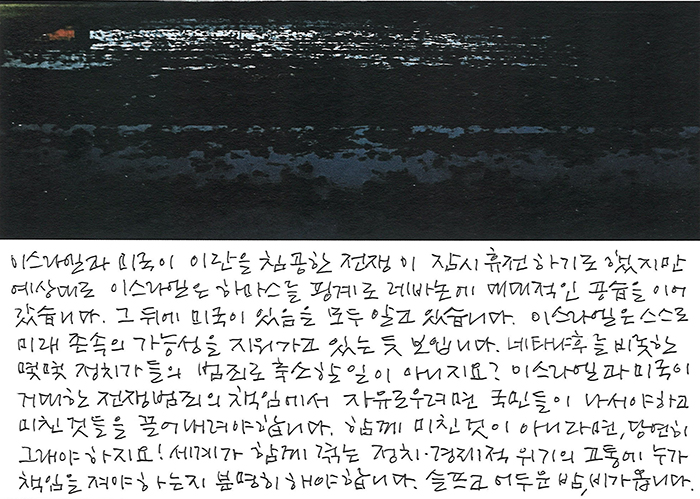 이스라엘과 미국이 이란을 침공한 전쟁이 잠시 휴전하기로 했지만
예상대로 이스라엘은 하마스를 핑계로 레바논에 대대적인 공습을 이어
갔습니다. 그 뒤에 미국이 있음을 모두 알고 있습니다. 이스라엘은 스스로
미래 존속의 가능성을 지워가고 있는 듯 보입니다. 네타냐후를 비롯한
몇몇 정치가들의 범죄로 축소할 일이 아니지요? 이스라엘과 미국이
거대한 전쟁범죄의 책임에서 자유로우려면 국민들이 나서야하고
미친것들을 끌어내려야합니다. 함께 미친것이 아니라면, 당연히
그래야 하지요! 세계가 함께 겪는 정치·경제적 위기의 고통에 누가
책임을 져야 하는지 분명히 해야합니다. 슬프고 어두운 밤, 비가 옵니다.